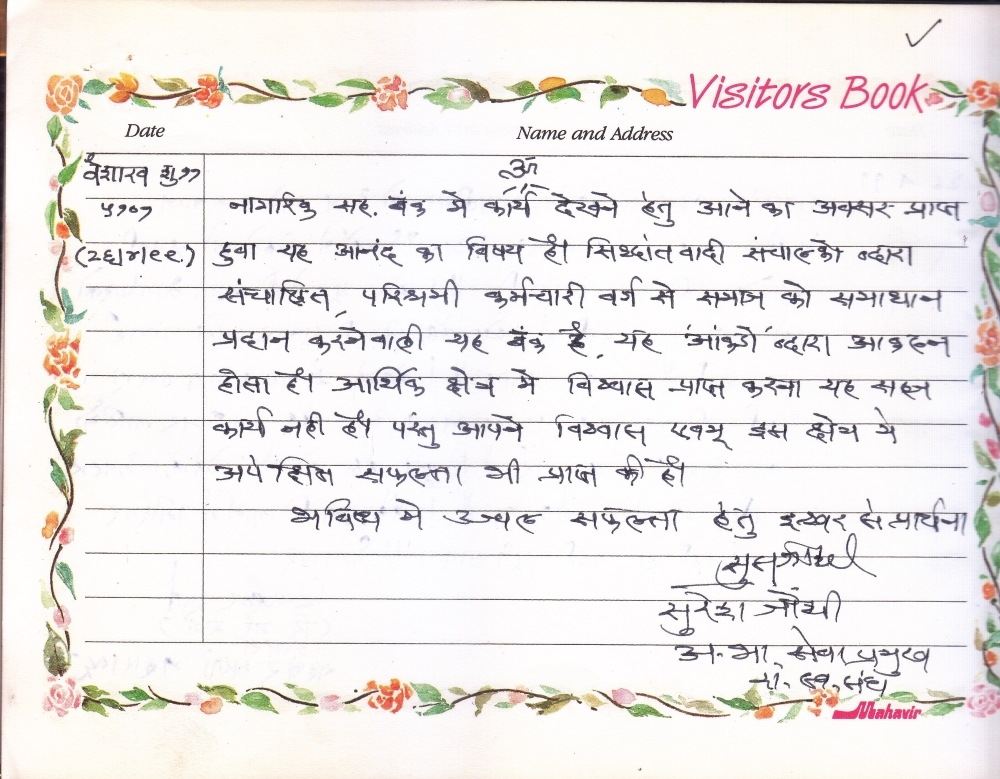 Visitors Book
Date Name and Address
ॐ
वैशाख शु ११
नागरिक सह. बंक मे कार्य देखने हेतु आने का अवसर प्राप्त
५१०१
हुवा यह आनंद का विषय है। सिध्दांतवादी संचालको व्दारा
(२६।४।९९)
संचालित, परिश्रमी कर्मचारी वर्ग से समाज को समाधान
प्रदान करनेवाली यह बंक है, यह आंकडो व्दारा आकलन
होता है। आर्थिक क्षेत्र मे विश्वास प्राप्त करना यह सहज
कार्य नही है। परंतु आपने विश्वास एवम् इस क्षेत्र मे
अपेक्षित सफलता भी प्राप्त की है।
भविष्य मे उज्वल सफलता हेतु इश्वर से प्रार्थना
सुरेश जोशी
अ. भा. सेवा प्रमुख
रा. स्व. संघ
Mahavir